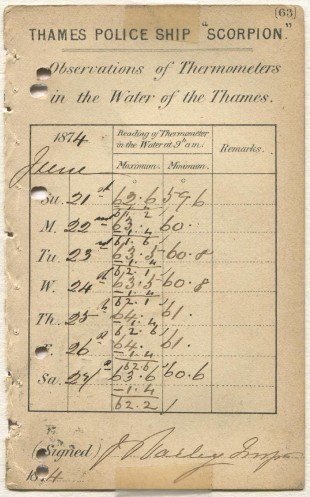 [63]
THAMES POLICE SHIP "SCORPION."
Observations of Thermometers
in the Water of the Thames.
1874 Reading of Thermometer
in the Water at 9h a.m. Remarks.
June Maximum. Minimum.
Su. 21st 62.6 59.6
-1.4
61.2
M. 22nd 63. 60.
-1.4
61.6
Tu. 23rd 63.5 60.8
-1.4
62.1
W. 24th 63.5 60.8
-1.4
62.1
Th. 25th 64. 61.
-1.4
62.6
F. 26th 64. 61.
-1.4
62.6
Sa. 27th 63.6 60.6
-1.4
62.2
(Signed)